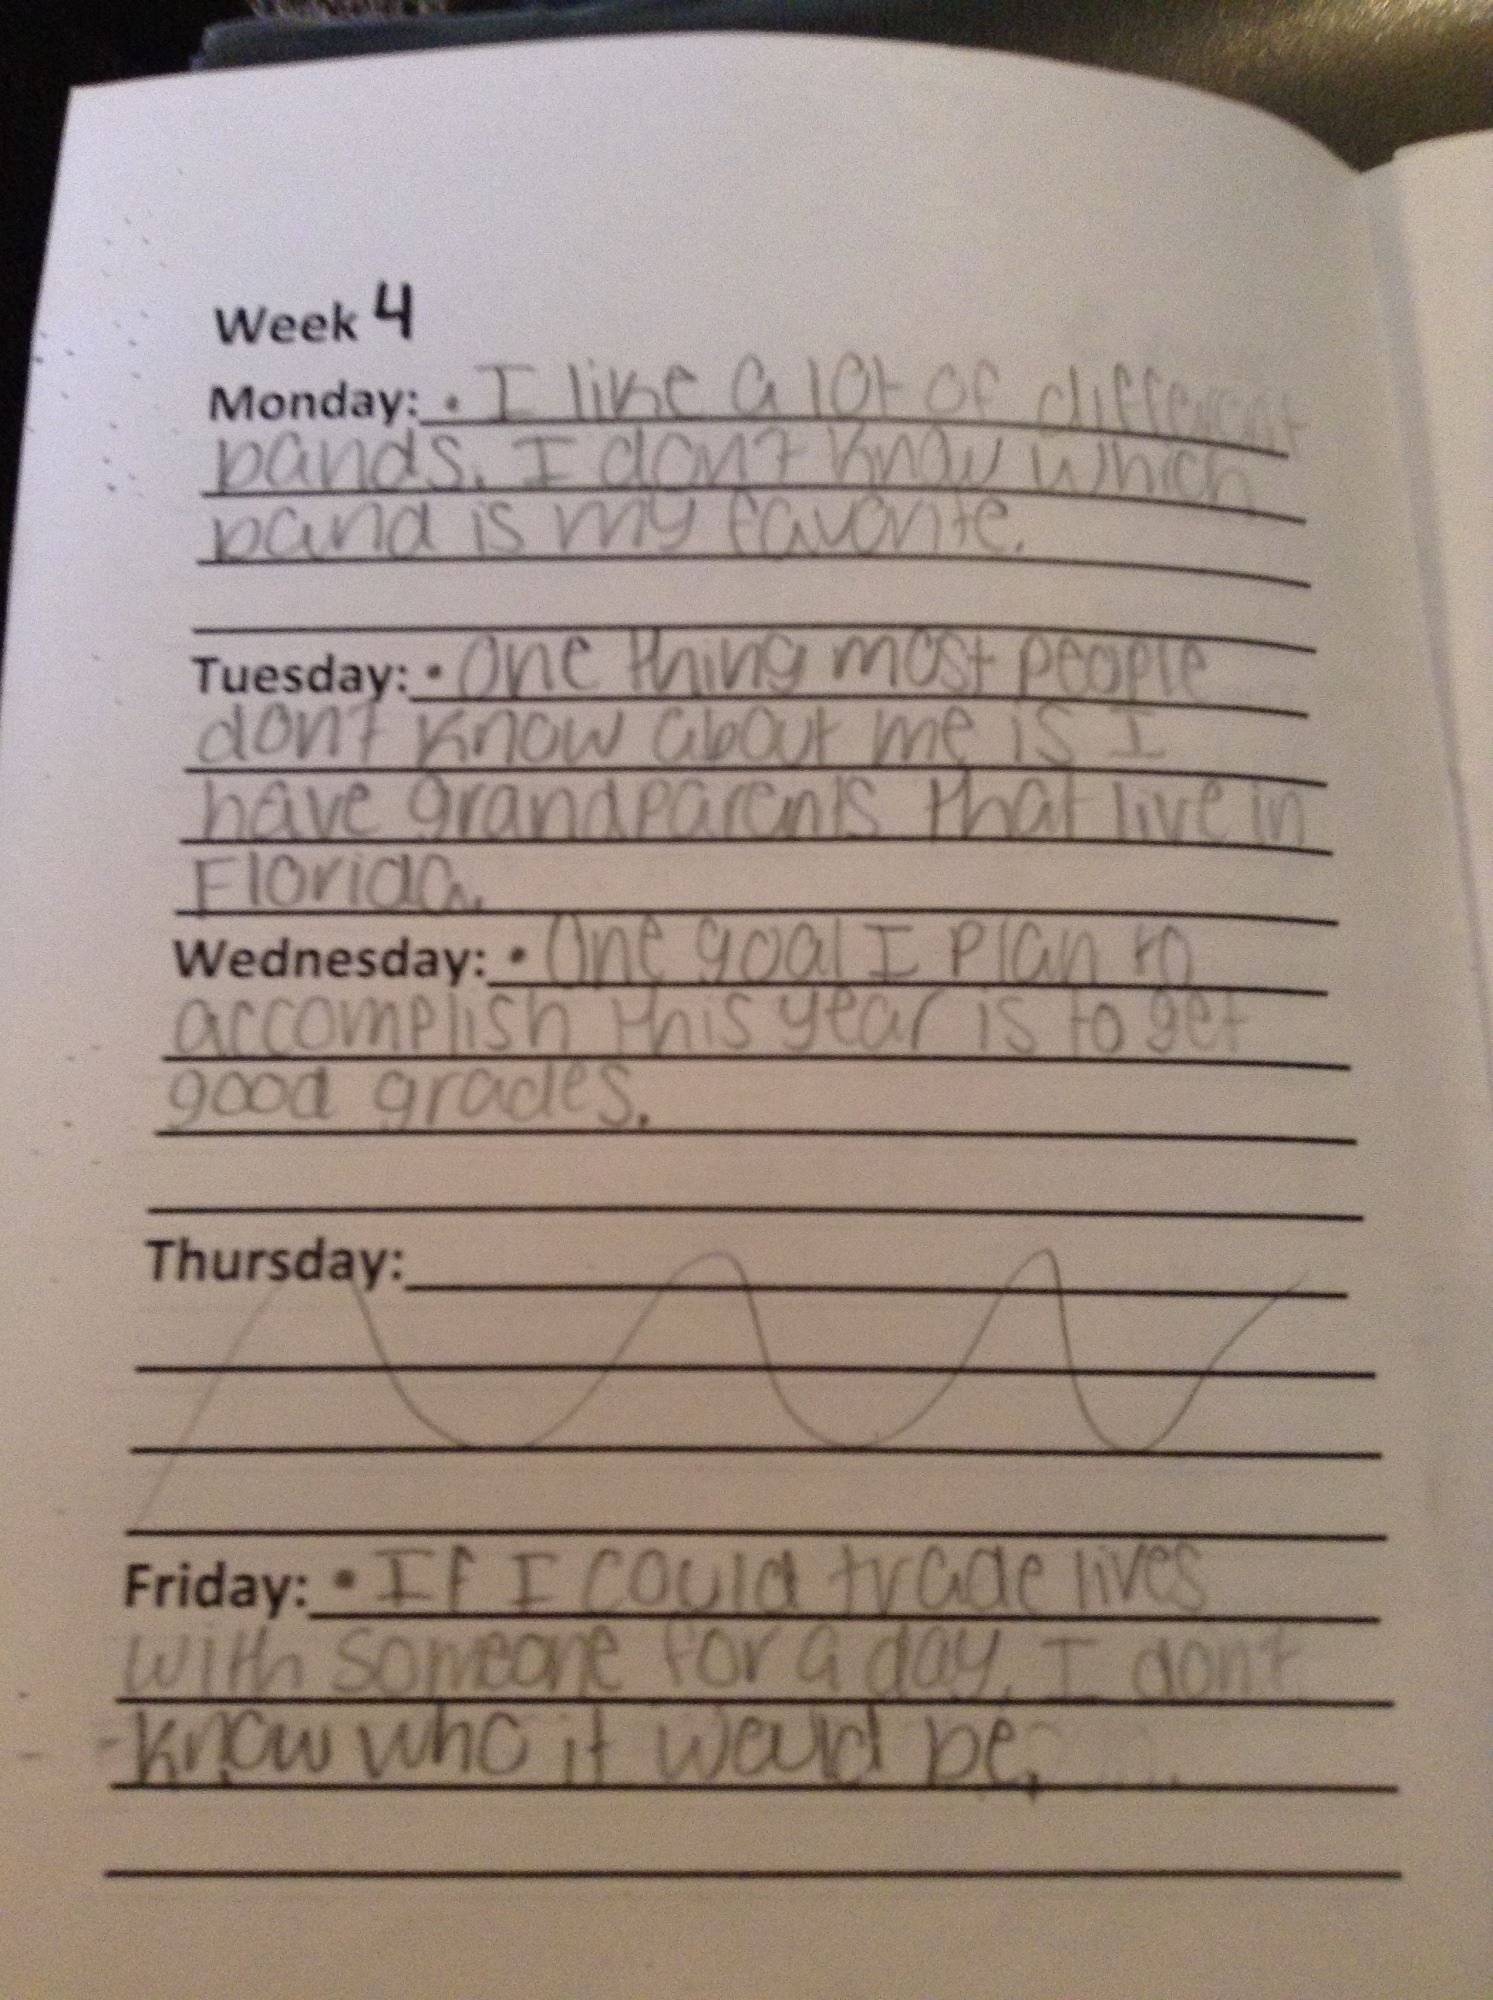 Week 4
Monday: • I like a lot of different
bands. I don't know which
band is my favorite.
Tuesday: • One thing most people
don't know about me is I
have grandparents that live in
Florida.
Wednesday: • One goal I plan to
accomplish this year is to get
good grades.
Thursday:
Friday: • If I could trade lives
with someone for a day, I don't
know who it would be.